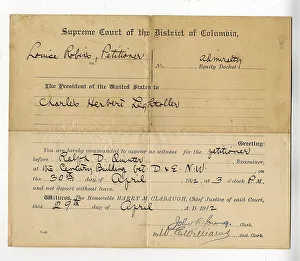 Supreme Court of the District of Columbia,
Louise Robins, Petitioner
vs.
No.
Admiralty
Equity Docket
The President of the United States to
Charles Herbert Lightoller
Greeting:
You are hereby commanded to appear as witness for the petitioner
before Ralph D. Quinter, Examiner,
at the Century Building bet D. & E. N.W
the 30th day of April 1912, at 3 o'clock P.M.,
and not depart without leave.
Witness, The Honorable HARRY M. CLABAUGH, Chief Justice of said Court,
this 29th day of April A.D. 1912
John R. Young, Clerk.
By W. E. Williams, Asst. Clerk.